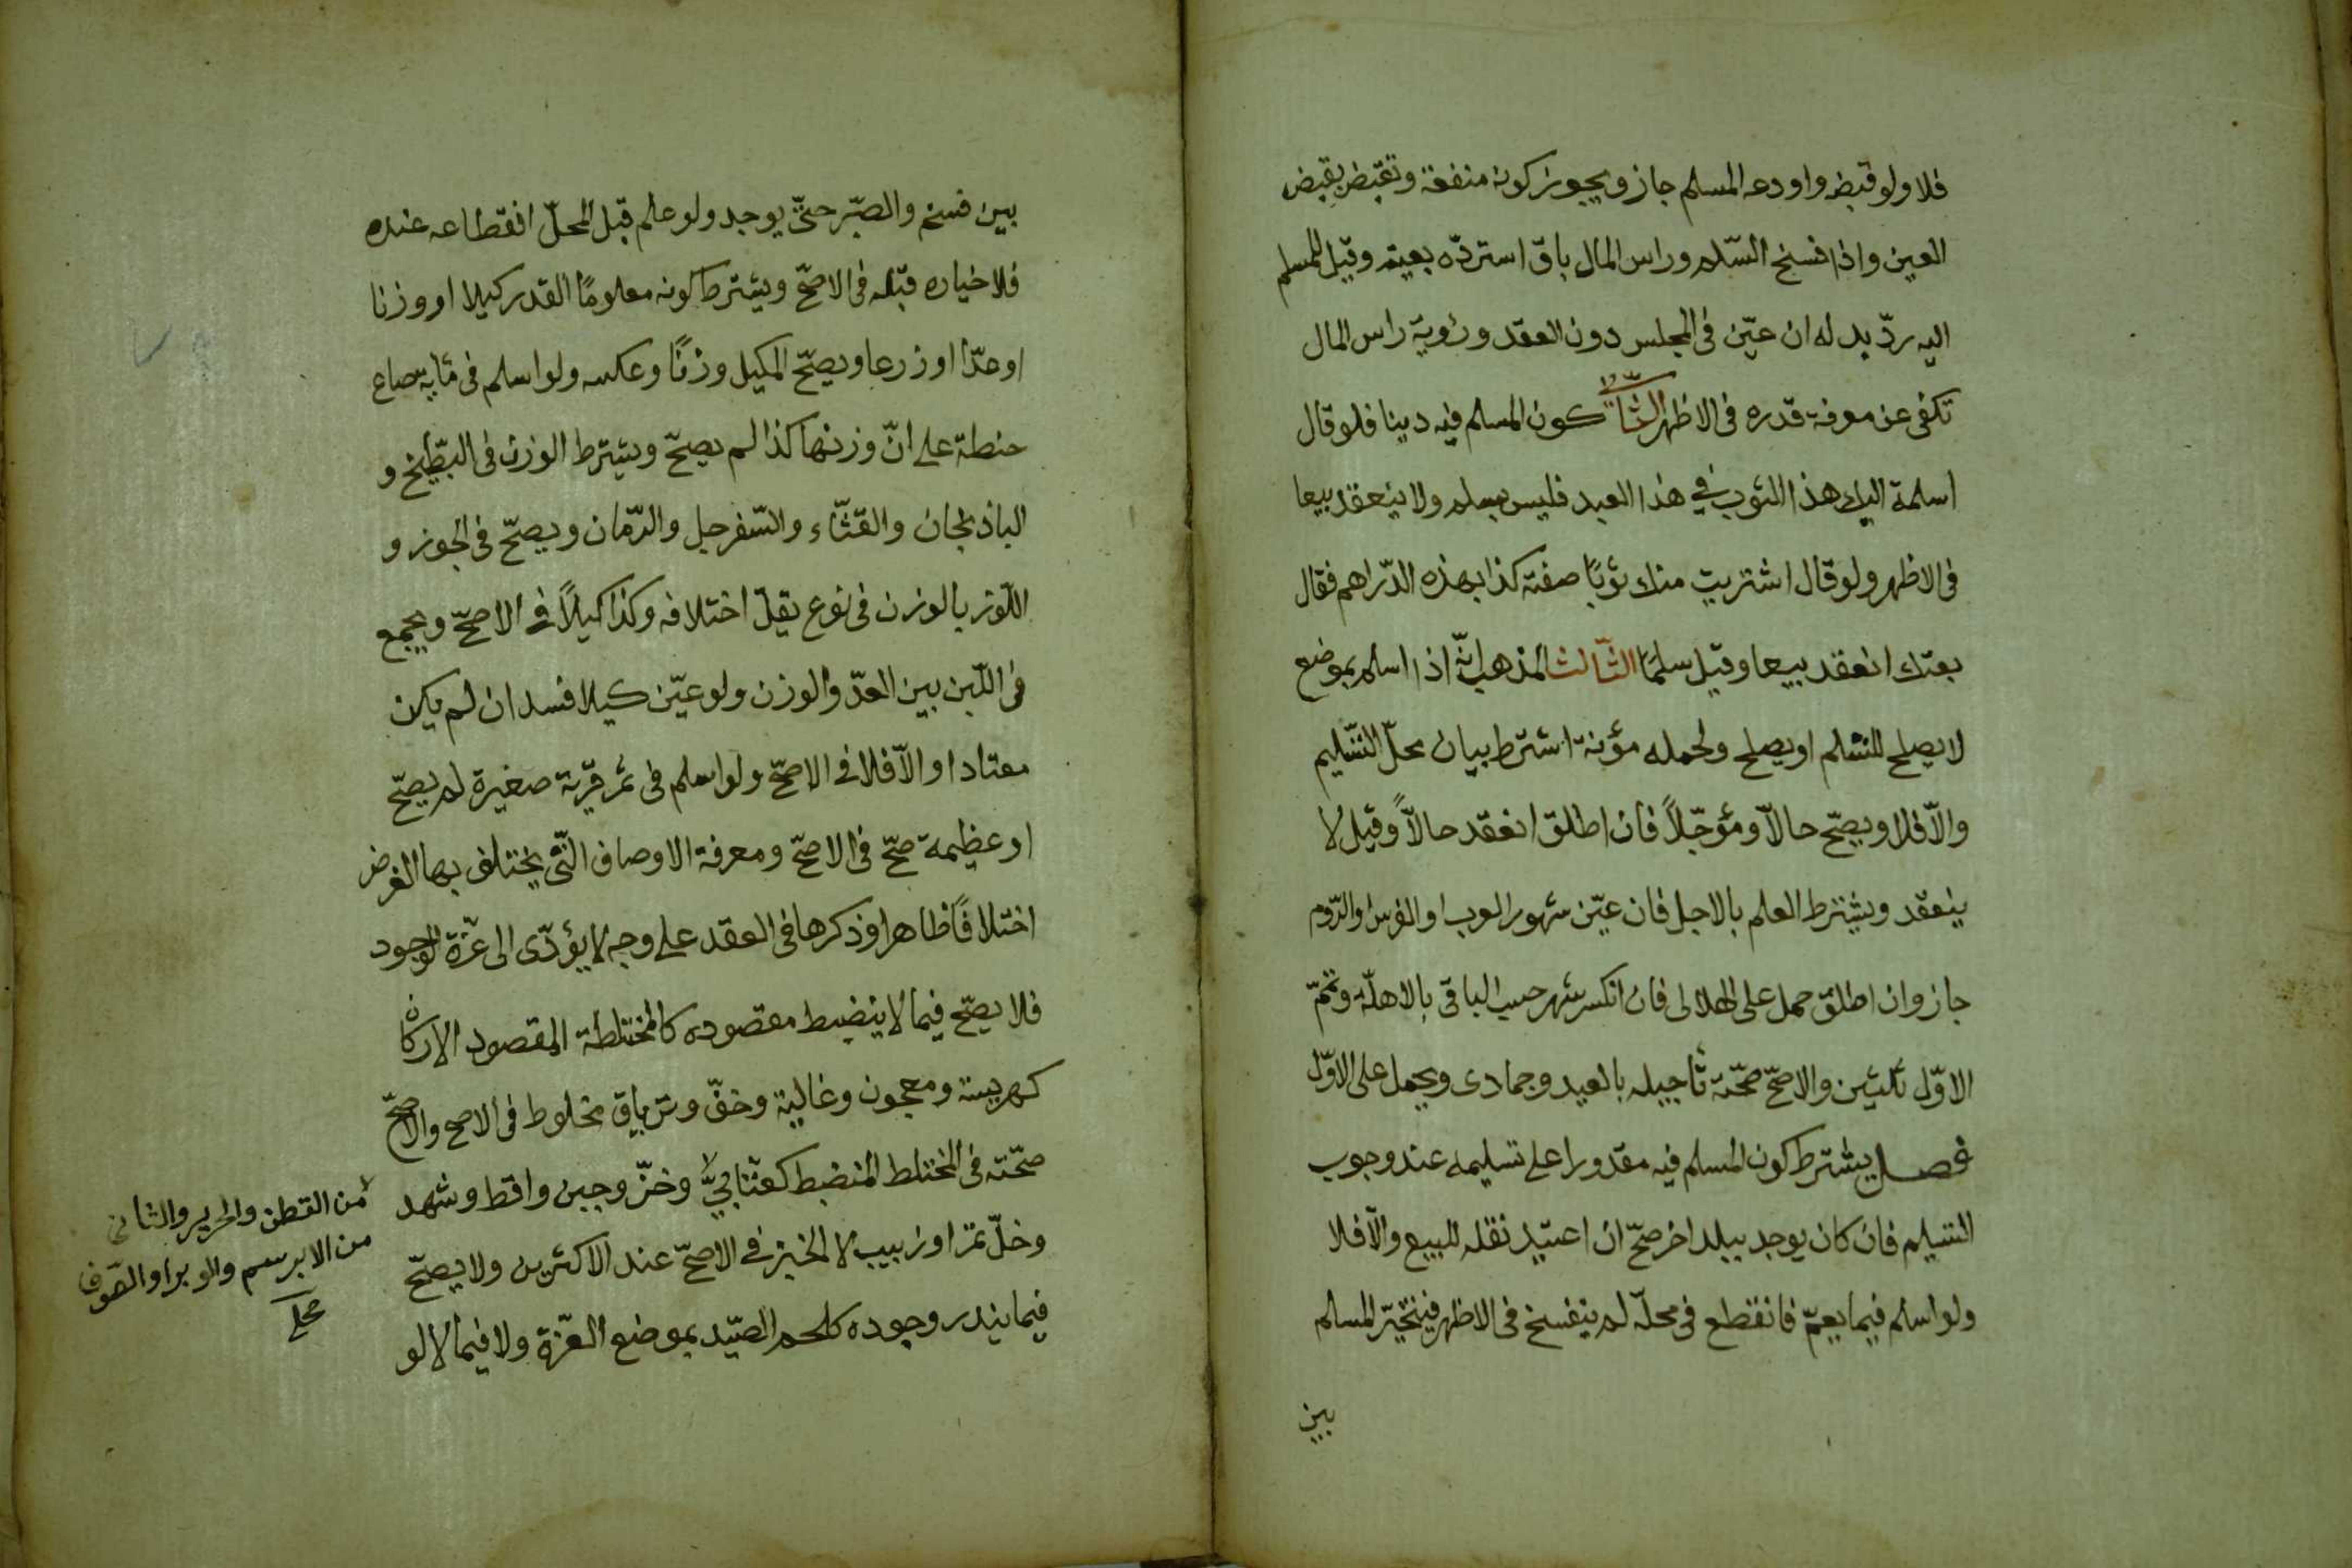 فلا ولو قبضه واودعه المسلم جاز ويجوز كونه منفعة وتقبض بقبض
العين واذا فسخ السّلم وراس المال باق استردّه بعينه وقيل للمسلم
اليه ردّ بدله ان عيّن فى المجلس دون العقد ورؤية راس المال
تكفى عن معرفة قدره فى الاظهر الثّانى كون المسلم فيه دينا فلو قال
اسلمة اليك هذا الثوب في هذا العبد فليس بسلم ولا ينعقد بيعا
فى الاظهر ولو قال اشتريت منك ثوبًا صفته كذا بهذه الدّراهم فقال
بعتك انعقد بيعا وقيل سلمًا الثّالث المذهب انّه اذا اسلم بموضع
لا يصلح للتسلم او يصلح ولحمله مؤنة اشترط بيان محلّ التّسليم
والّا فلا ويصحّ حالّا ومؤجّلاً فان اطلق انعقد حالّاً وقيل لا
ينعقد ويشترط العلم بالاجل فان عيّن شهور العرب او الفرس او الرّوم
جاز وان اطلق حمل على الهلالى فان انكسر شهر حسب الباقى بالاهلّة وتمّم
الاوّل ثلثين والاصحّ صحّة تأجيله بالعيد وجمادى ويحمل على الاوّل
فصل يشترط كون المسلم فيه مقدورا على تسليمه عند وجوب
التسليم فان كان يوجد ببلد اخر صحّ ان اعتيد نقله للبيع والّا فلا
ولو اسلم فيما يعمّ فانقطع فى محلّه لم ينفسخ فى الاظهر فيتخيّر المسلم
بين
بين فسخه والصّبر حتّى يوجد ولو علم قبل المحلّ انقطاعه عنده
فلا خيار قبله فى الاصحّ ويشترط كونه معلومًا القدر كيلا او وزنا
او عدّا او زرعا ويصحّ المكيل وزنًا وعكسه ولو اسلم فى مأية صاع
حنطة على انّ وزنها كذا لم يصحّ ويشترط الوزن فى البطّيخ و
الباذنجان والقثّاء والسّفرجل والرّمان ويصحّ فى الجوز و
اللّوز بالوزن فى نوع يقلّ اختلافه وكذا كيلاً فى الاصحّ ويجمع
فى اللّبن بين العدّ والوزن ولو عيّن كيلا فسد ان لم يكن
معتادا والّا فلا فى الاصحّ ولو اسلم فى ثمر قرية صغيرة لم يصحّ
او عظيمة صحّ فى الاصحّ ومعرفة الاوصاف الّتى يختلف بها الغرض
اختلافًا ظاهرا وذكرها فى العقد على وجه لا يؤدّى الى عزّة الوجود
فلا يصحّ فيما لا ينضبط مقصوده كالمختلطة المقصود الاركان
كهريسة ومعجون وغالية وخفّ وترياق مخلوط فى الاصح والاصحّ
صحّته فى المختلط المنضبط كعتّابيّ وخزّ وجبن واقط وشهد
وخلّ تمر او زبيب لا الخبز فى الاصحّ عند الاكثرين ولا يصحّ
فيما يندر وجوده كلحم الصّيد بموضع العزّة ولا فيما لا لو
من القطن والحرير والثانى
من الابرسم والوبر او الصّوف
محلى